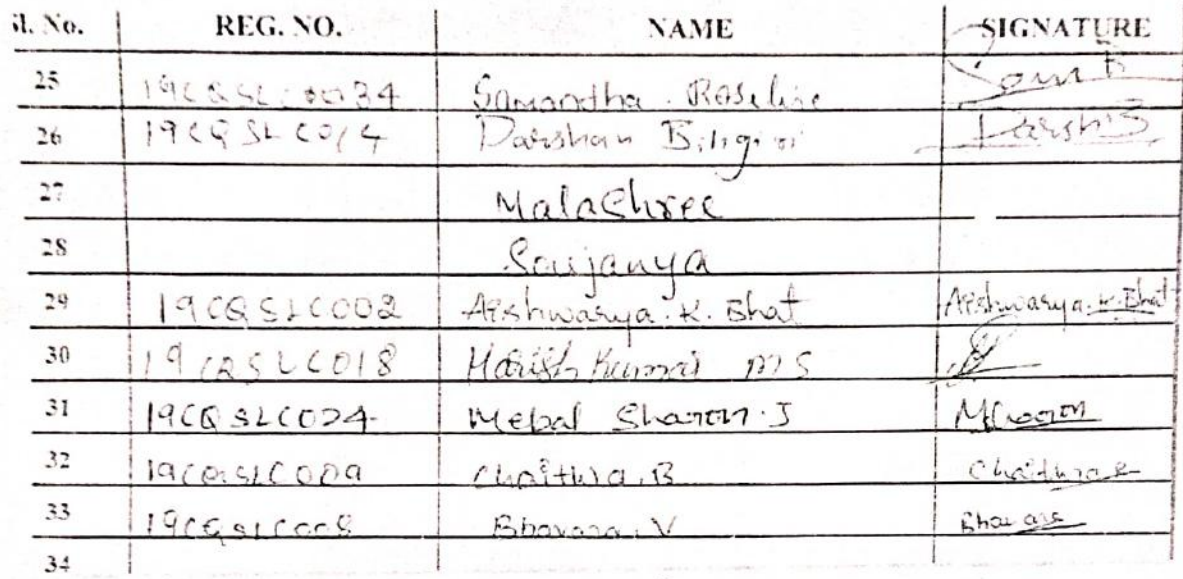 Sl. No. REG. NO. NAME SIGNATURE
25 19CQSLC0034 Samantha Roseline Sam R
26 19CQSLC014 Darshan Biligiri Darsh B
27 Malashree
28 Soujanya
29 19CQSLC002 Aishwarya. K. Bhat Aishwarya. K. Bhat
30 19CQSLC018 Harish Kumar M S
31 19CQSLC024 Mebal Sharon. J MSharon
32 19CQSLC009 Chaithra. B Chaithra B
33 19CQSLC008 Bhavana. V Bhavana
34